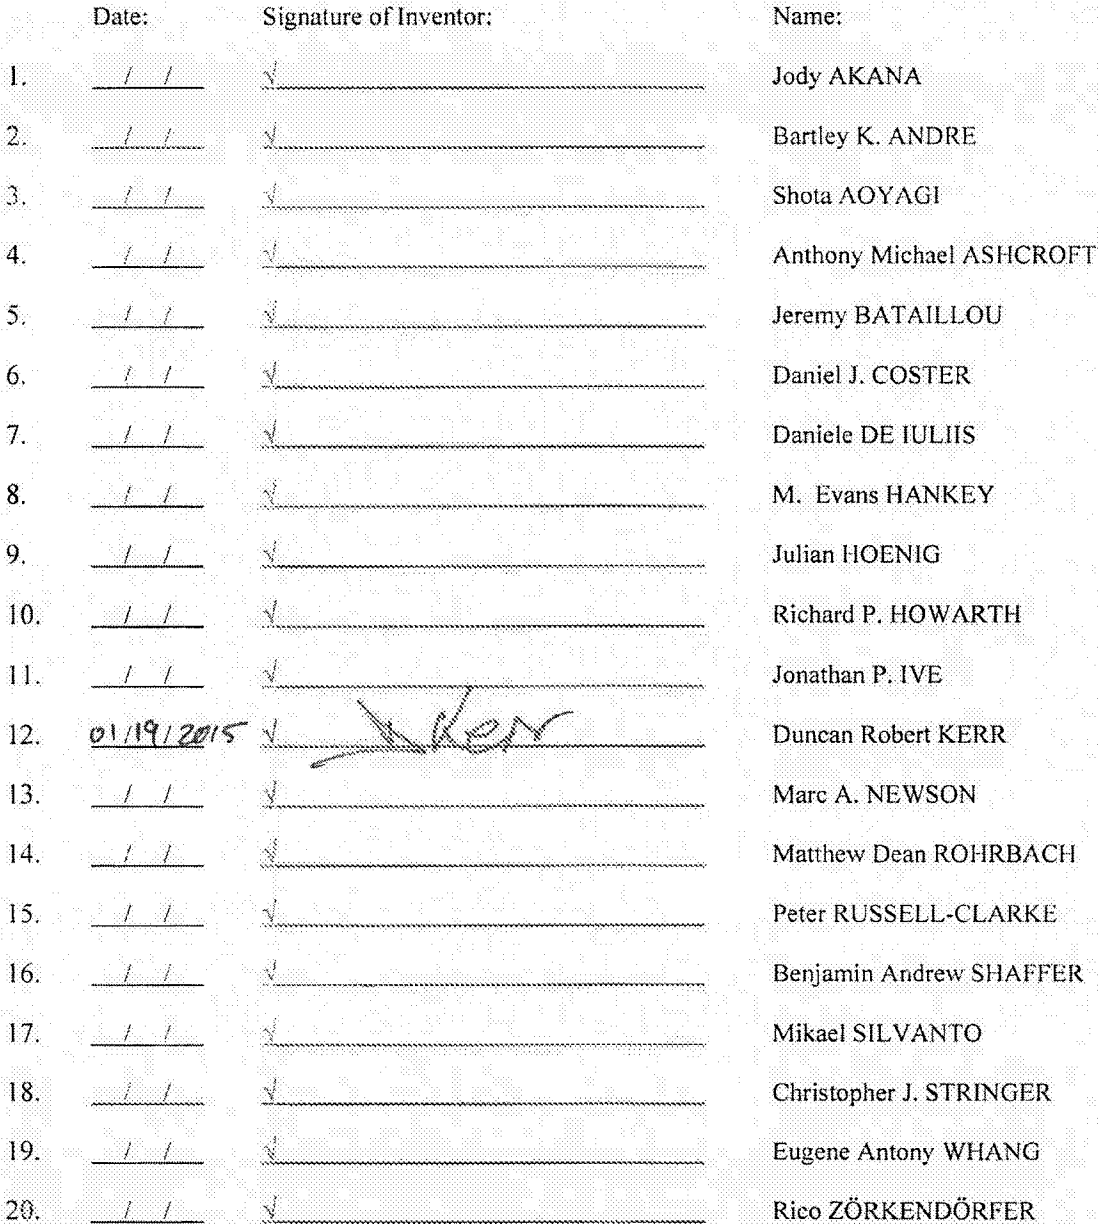 Date: Signature of Inventor: Name:
1. / / √ Jody AKANA
2. / / √ Bartley K. ANDRE
3. / / √ Shota AOYAGI
4. / / √ Anthony Michael ASHCROFT
5. / / √ Jeremy BATAILLOU
6. / / √ Daniel J. COSTER
7. / / √ Daniele DE IULIIS
8. / / √ M. Evans HANKEY
9. / / √ Julian HOENIG
10. / / √ Richard P. HOWARTH
11. / / √ Jonathan P. IVE
12. 01/19/2015 √ Kerr Duncan Robert KERR
13. / / √ Marc A. NEWSON
14. / / √ Matthew Dean ROHRBACH
15. / / √ Peter RUSSELL-CLARKE
16. / / √ Benjamin Andrew SHAFFER
17. / / √ Mikael SILVANTO
18. / / √ Christopher J. STRINGER
19. / / √ Eugene Antony WHANG
20. / / √ Rico ZÖRKENDÖRFER